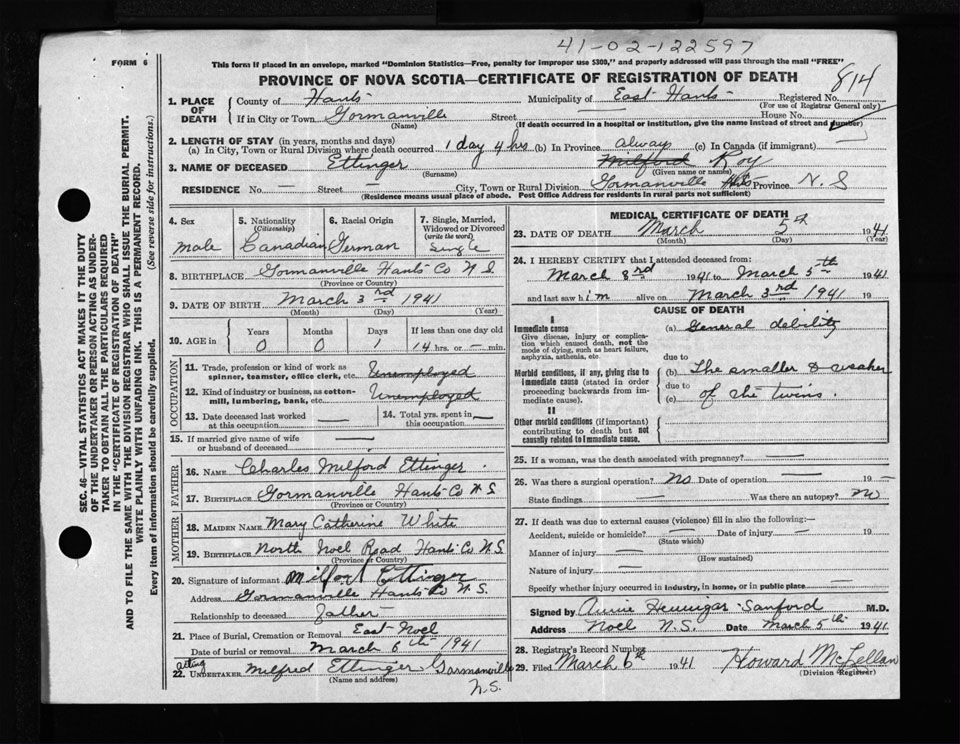 41-02-122597
FORM 6
This form if placed in an envelope, marked "Dominion Statistics—Free, penalty for improper use $300," and properly addressed will pass through the mail "FREE"
PROVINCE OF NOVA SCOTIA—CERTIFICATE OF REGISTRATION OF DEATH
814
1. PLACE OF DEATH
County of Hants Municipality of East Hants Registered No.
(For use of Registrar General only)
If in City or Town Gormanville Street — House No.
(Name) (If death occurred in a hospital or institution, give the name instead of street and number)
2. LENGTH OF STAY (in years, months and days)
(a) In City, Town or Rural Division where death occurred 1 day 4 hrs (b) In Province always (c) In Canada (if immigrant)
3. NAME OF DECEASED Ettinger Milford Roy
(Surname) (Given name or names)
RESIDENCE No. — Street — City, Town or Rural Division Gormanville Hts Province N. S
(Residence means usual place of abode. Post Office Address for residents in rural parts not sufficient)
4. Sex
male
5. Nationality (Citizenship)
Canadian
6. Racial Origin
German
7. Single, Married, Widowed or Divorced (write the word)
Single
8. BIRTHPLACE Gormanville Hants Co N S
(Province or Country)
9. DATE OF BIRTH March 3rd 1941
(Month) (Day) (Year)
10. AGE Years Months Days If less than one day old
0 0 1 14 hrs. or — min.
OCCUPATION
11. Trade, profession or kind of work as spinner, teamster, office clerk, etc. Unemployed
12. Kind of industry or business, as cotton-mill, lumbering, bank, etc. Unemployed
13. Date deceased last worked at this occupation —
14. Total yrs. spent in this occupation —
15. If married give name of wife or husband of deceased
FATHER
16. NAME Charles Milford Ettinger
17. BIRTHPLACE Gormanville Hants Co N S
MOTHER
18. MAIDEN NAME Mary Catherine White
19. BIRTHPLACE North Noel Road Hants Co N. S.
(Province or Country)
20. Signature of informant Milford Ettinger
Address Gormanville Hants Co N. S.
Relationship to deceased Father
21. Place of Burial, Cremation or Removal East Noel
Date of burial or removal March 6th 1941
Acting
22. UNDERTAKER Milfred Ettinger Gormanville
(Name and address) N.S.
MEDICAL CERTIFICATE OF DEATH
23. DATE OF DEATH March 5th 1941
(Month) (Day) (Year)
24. I HEREBY CERTIFY that I attended deceased from:
March 3rd 1941 to March 5th 1941
and last saw him alive on March 3rd 1941 19
CAUSE OF DEATH
I
Immediate cause
Give disease, injury or complication which caused death, not the mode of dying, such as heart failure, asphyxia, asthenia, etc.
(a) General debility
due to
Morbid conditions, if any, giving rise to immediate cause (stated in order proceeding backwards from immediate cause).
(b) The smaller & weaker
due to
(c) of the twins.
II
Other morbid conditions (if important) contributing to death but not causally related to immediate cause.
25. If a woman, was the death associated with pregnancy? —
26. Was there a surgical operation? No Date of operation — 19 —
State findings — Was there an autopsy? No
27. If death was due to external causes (violence) fill in also the following:—
Accident, suicide or homicide? — Date of injury — 19
(State which)
Manner of injury —
(How sustained)
Nature of injury —
Specify whether injury occurred in industry, in home, or in public place —
Signed by Annie Hennigar-Sanford M.D.
Address Noel N.S. Date March 5th 1941
28. Registrar's Record Number
29. Filed March 6th 1941 Howard McLellan
(Division Registrar)
SEC. 46—VITAL STATISTICS ACT MAKES IT THE DUTY
OF THE UNDERTAKER OR PERSON ACTING AS UNDERTAKER TO OBTAIN ALL THE PARTICULARS REQUIRED
IN THE "CERTIFICATE OF REGISTRATION OF DEATH"
AND TO FILE THE SAME WITH THE DIVISION REGISTRAR WHO SHALL ISSUE THE BURIAL PERMIT.
WRITE PLAINLY WITH UNFADING INK. THIS IS A PERMANENT RECORD.
Every item of information should be carefully supplied. (See reverse side for instructions.)